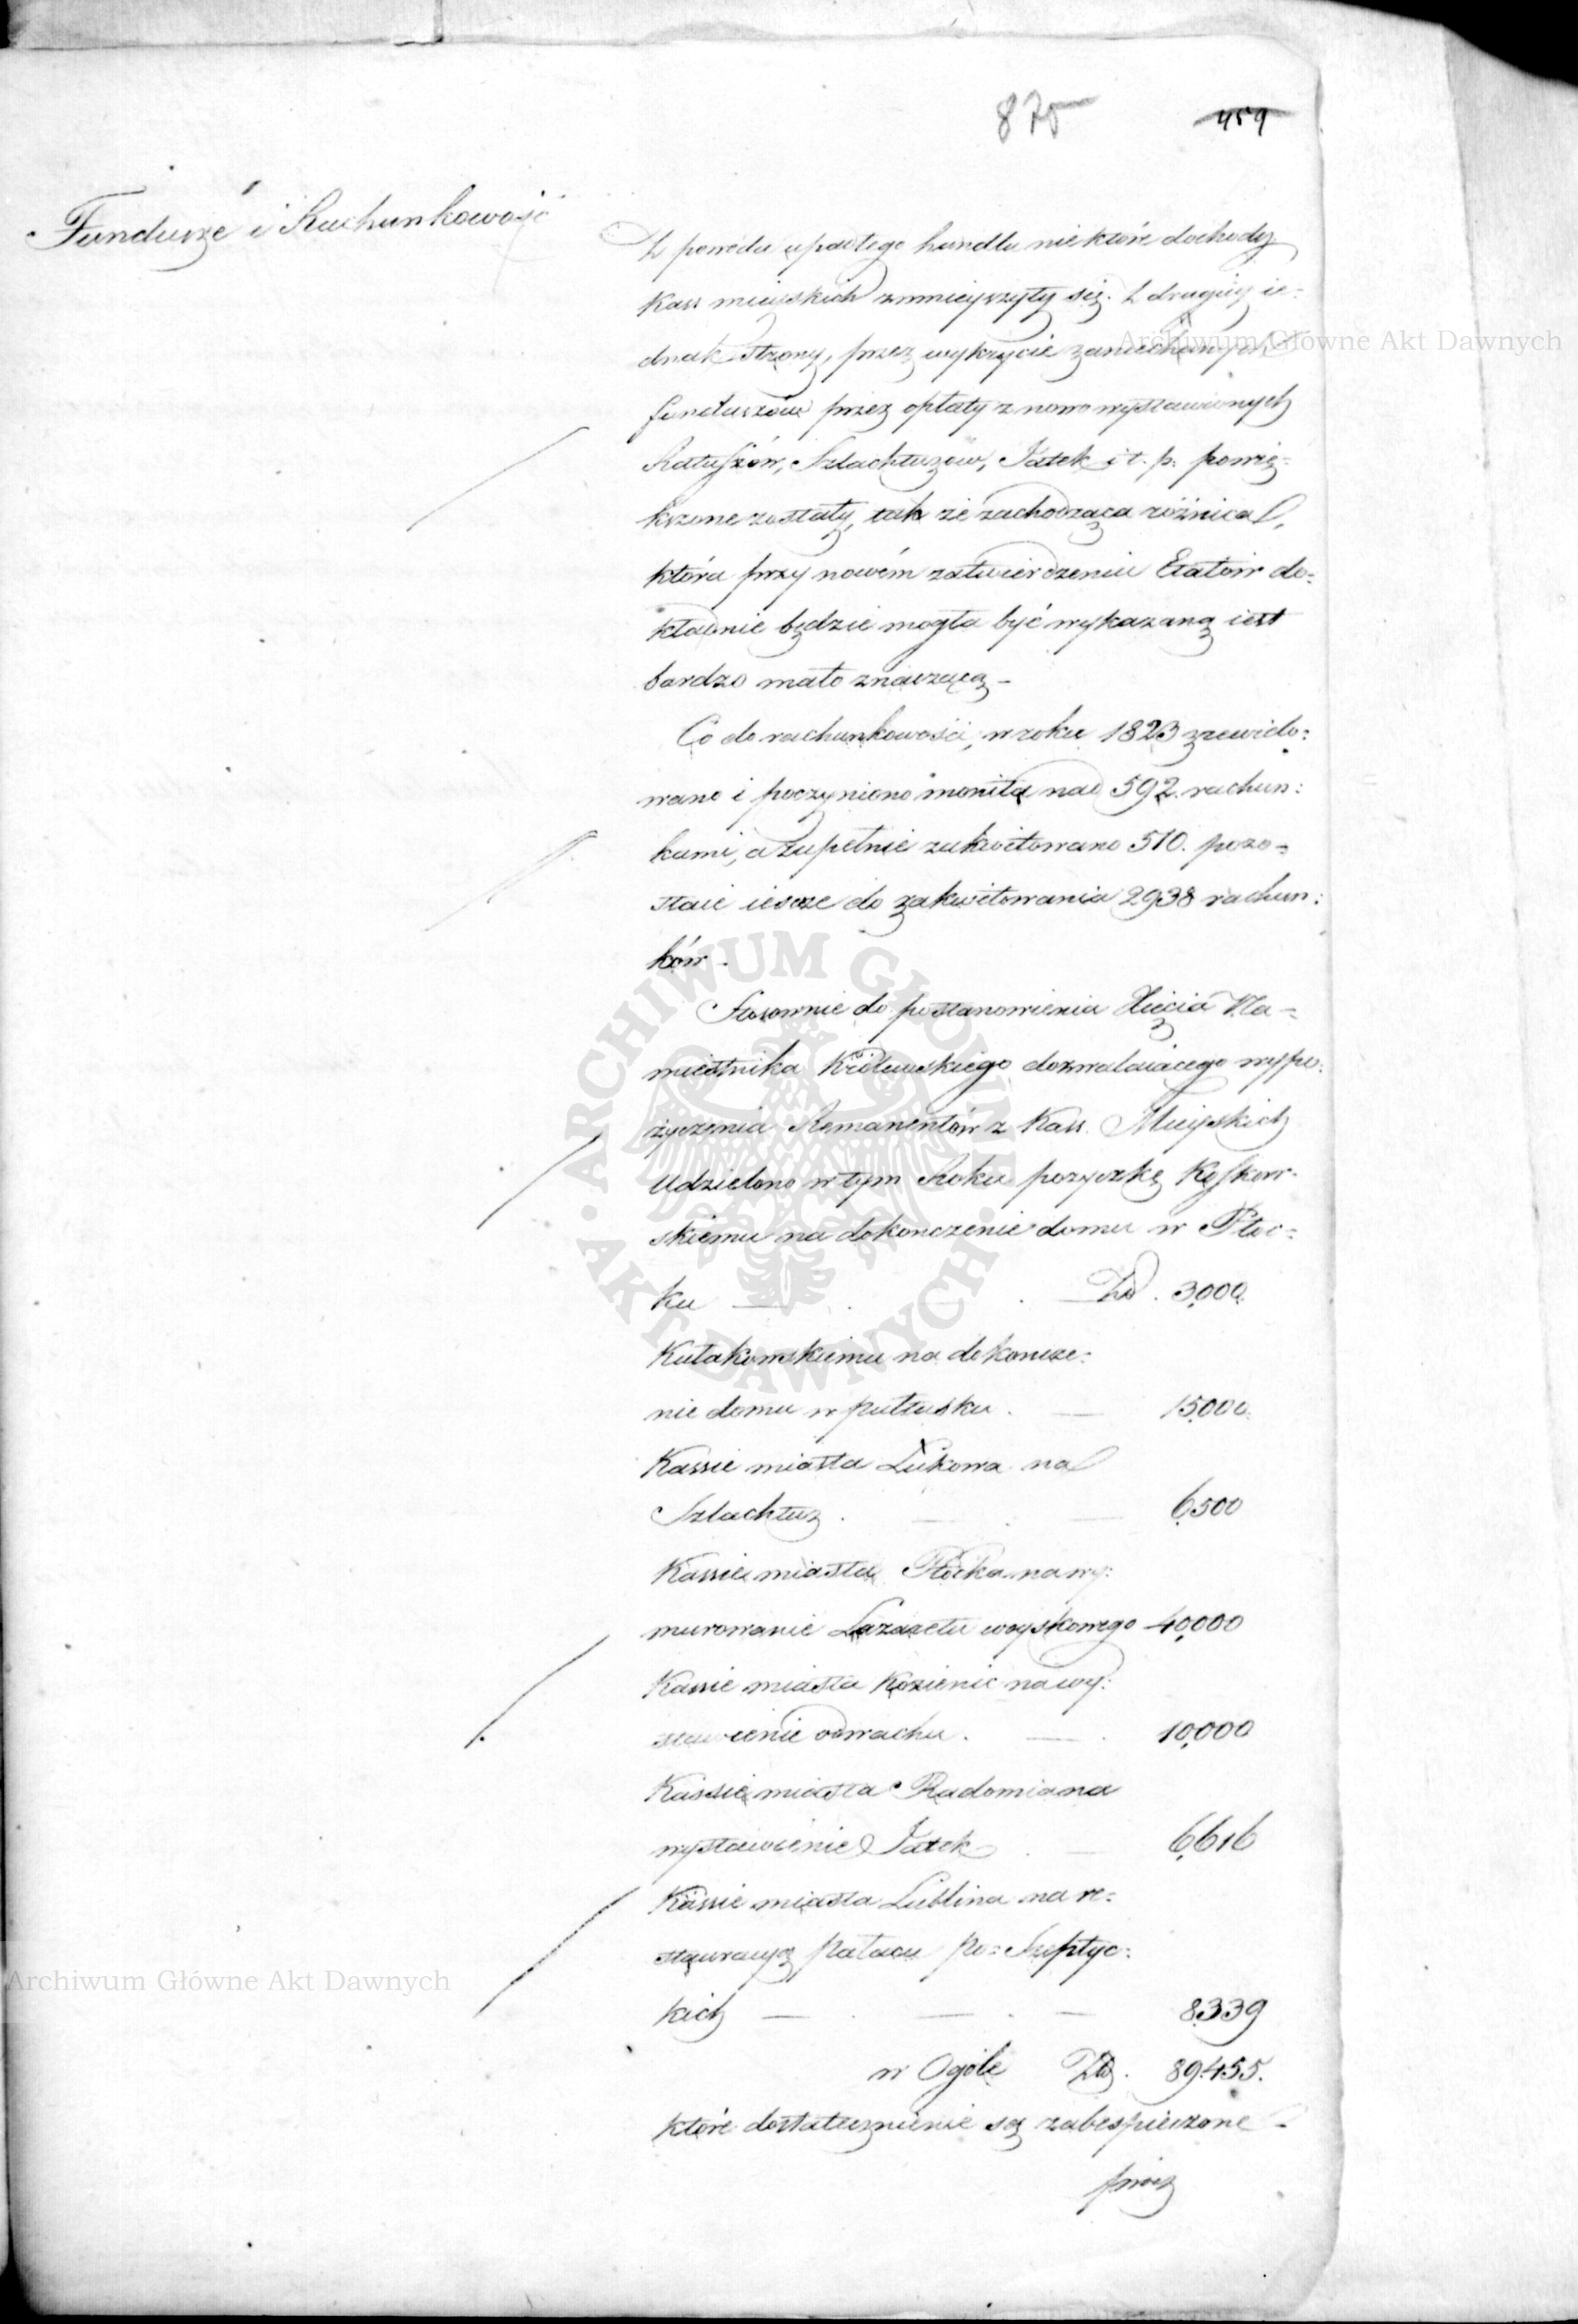 875 459
Fundusze i Rachunkowość
Z powodu upadłego handlu niektóre dochody
Kass mieyskich zmnieyszyły się. Z drugiéy ie=
dnak strony, przez wykrycie zaniechanych
funduszów przez opłaty z nowo wystawionych
Ratuszów, Szlachtuzów, Jatek i t. p. powię=
kszone zostały, tak że zachodząca różnica,
która przy nowém zatwierdzeniu Etatów do=
kładnie będzie mogła być wykazaną iest
bardzo mało znaczącą –
Co do rachunkowości, w roku 1823 zrewido=
wano i poczyniono monita nad 592. rachun=
kami, a zupełnie zakwitowano 510. pozo=
staie iescze do zakwitowania 2938 rachun=
ków –
Stosownie do postanowienia Xięcia Na=
miestnika Królewskiego dozwalaiącego wypo=
życzenia Remanentów z Kass Mieyskich
udzielono w tym Roku pożyczkę
skiemu na dokonczenie domu w Płoc=
ku — . . Złp. 3,000.
Kułakowskiemu na dokoncze=
nie domu w Pułtusku . — 15,000.
Kassie miasta Łukowa na
Szlachtuz . — . — 6,500
Kassie miasta Płocka na wy=
murowanie Lazaretu woyskowego 40,000
Kassie miasta Kozienic na wy=
stawienie odwachu . — . 10,000
Kassie miasta Radomia na
wystawienie Jatek . — 6,616
Kassie miasta Lublina na re=
stauracyą Pałacu po= Szeptyc=
kich — . — . — 8,339
w Ogóle Złp. 89,455.
które dostatecznienie są zabespieczone –
przez
Archiwum Główne Akt Dawnych
ARCHIWUM GŁÓWNE
· AKT DAWNYCH ·
Archiwum Główne Akt Dawnych